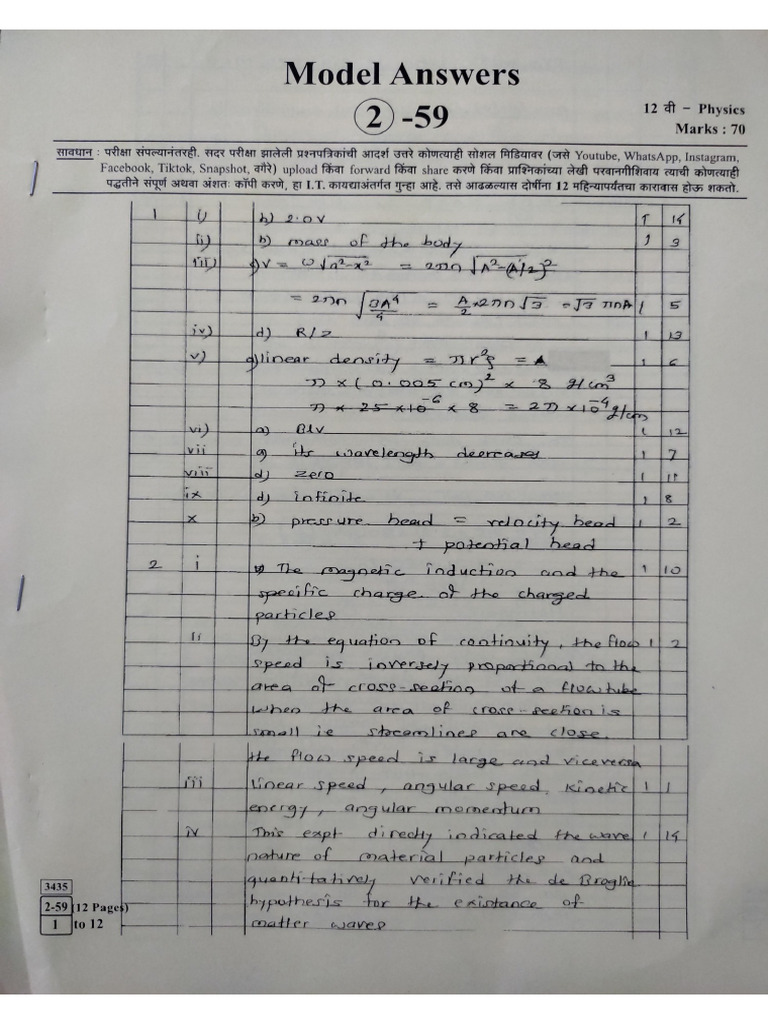 Model Answers
2 -59
12 वी – Physics
Marks : 70
सावधान : परीक्षा संपल्यानंतरही. सदर परीक्षा झालेली प्रश्नपत्रिकांची आदर्श उत्तरे कोणत्याही सोशल मिडियावर (जसे Youtube, WhatsApp, Instagram,
Facebook, Tiktok, Snapshot, वगैरे) upload किंवा forward किंवा share करणे किंवा प्राश्निकांच्या लेखी परवानगीशिवाय त्याची कोणत्याही
पद्धतीने संपूर्ण अथवा अंशतः कॉपी करणे, हा I.T. कायद्याअंतर्गत गुन्हा आहे. तसे आढळल्यास दोषींना 12 महिन्यापर्यंतचा कारावास होऊ शकतो.
1 i) b) 2.0V 1 14
ii) b) mass of the body 1 3
iii) V = ω√A²-x² = 2πn √A²-(A/2)²
= 2πn √3A⁴/4 = A/2 × 2πn √3 = √3 πnA 1 5
iv) d) R/2 1 13
v) a) linear density = πr²ρ = A 1 6
π × (0.005 cm)² × 8 g/cm³
π × 25 × 10⁻⁶ × 8 = 2π × 10⁻⁴ g/cm
vi) a) Blv 1 12
vii a) its wavelength decreases 1 7
viii d) zero 1 11
ix d) infinite 1 8
x b) pressure head = velocity head 1 2
+ potential head
2 i The magnetic induction and the 1 10
specific charge of the charged
particles
ii By the equation of continuity, the flow 1 2
speed is inversely proportional to the
area of cross-section of a flow tube
When the area of cross-section is
small ie streamlines are close.
the flow speed is large and viceversa
iii linear speed, angular speed, kinetic 1 1
energy, angular momentum
iv This expt directly indicated the wave 1 14
nature of material particles and
quantitatively verified the de Broglie
hypothesis for the existance of
matter waves
3435
2-59 (12 Pages)
1 to 12